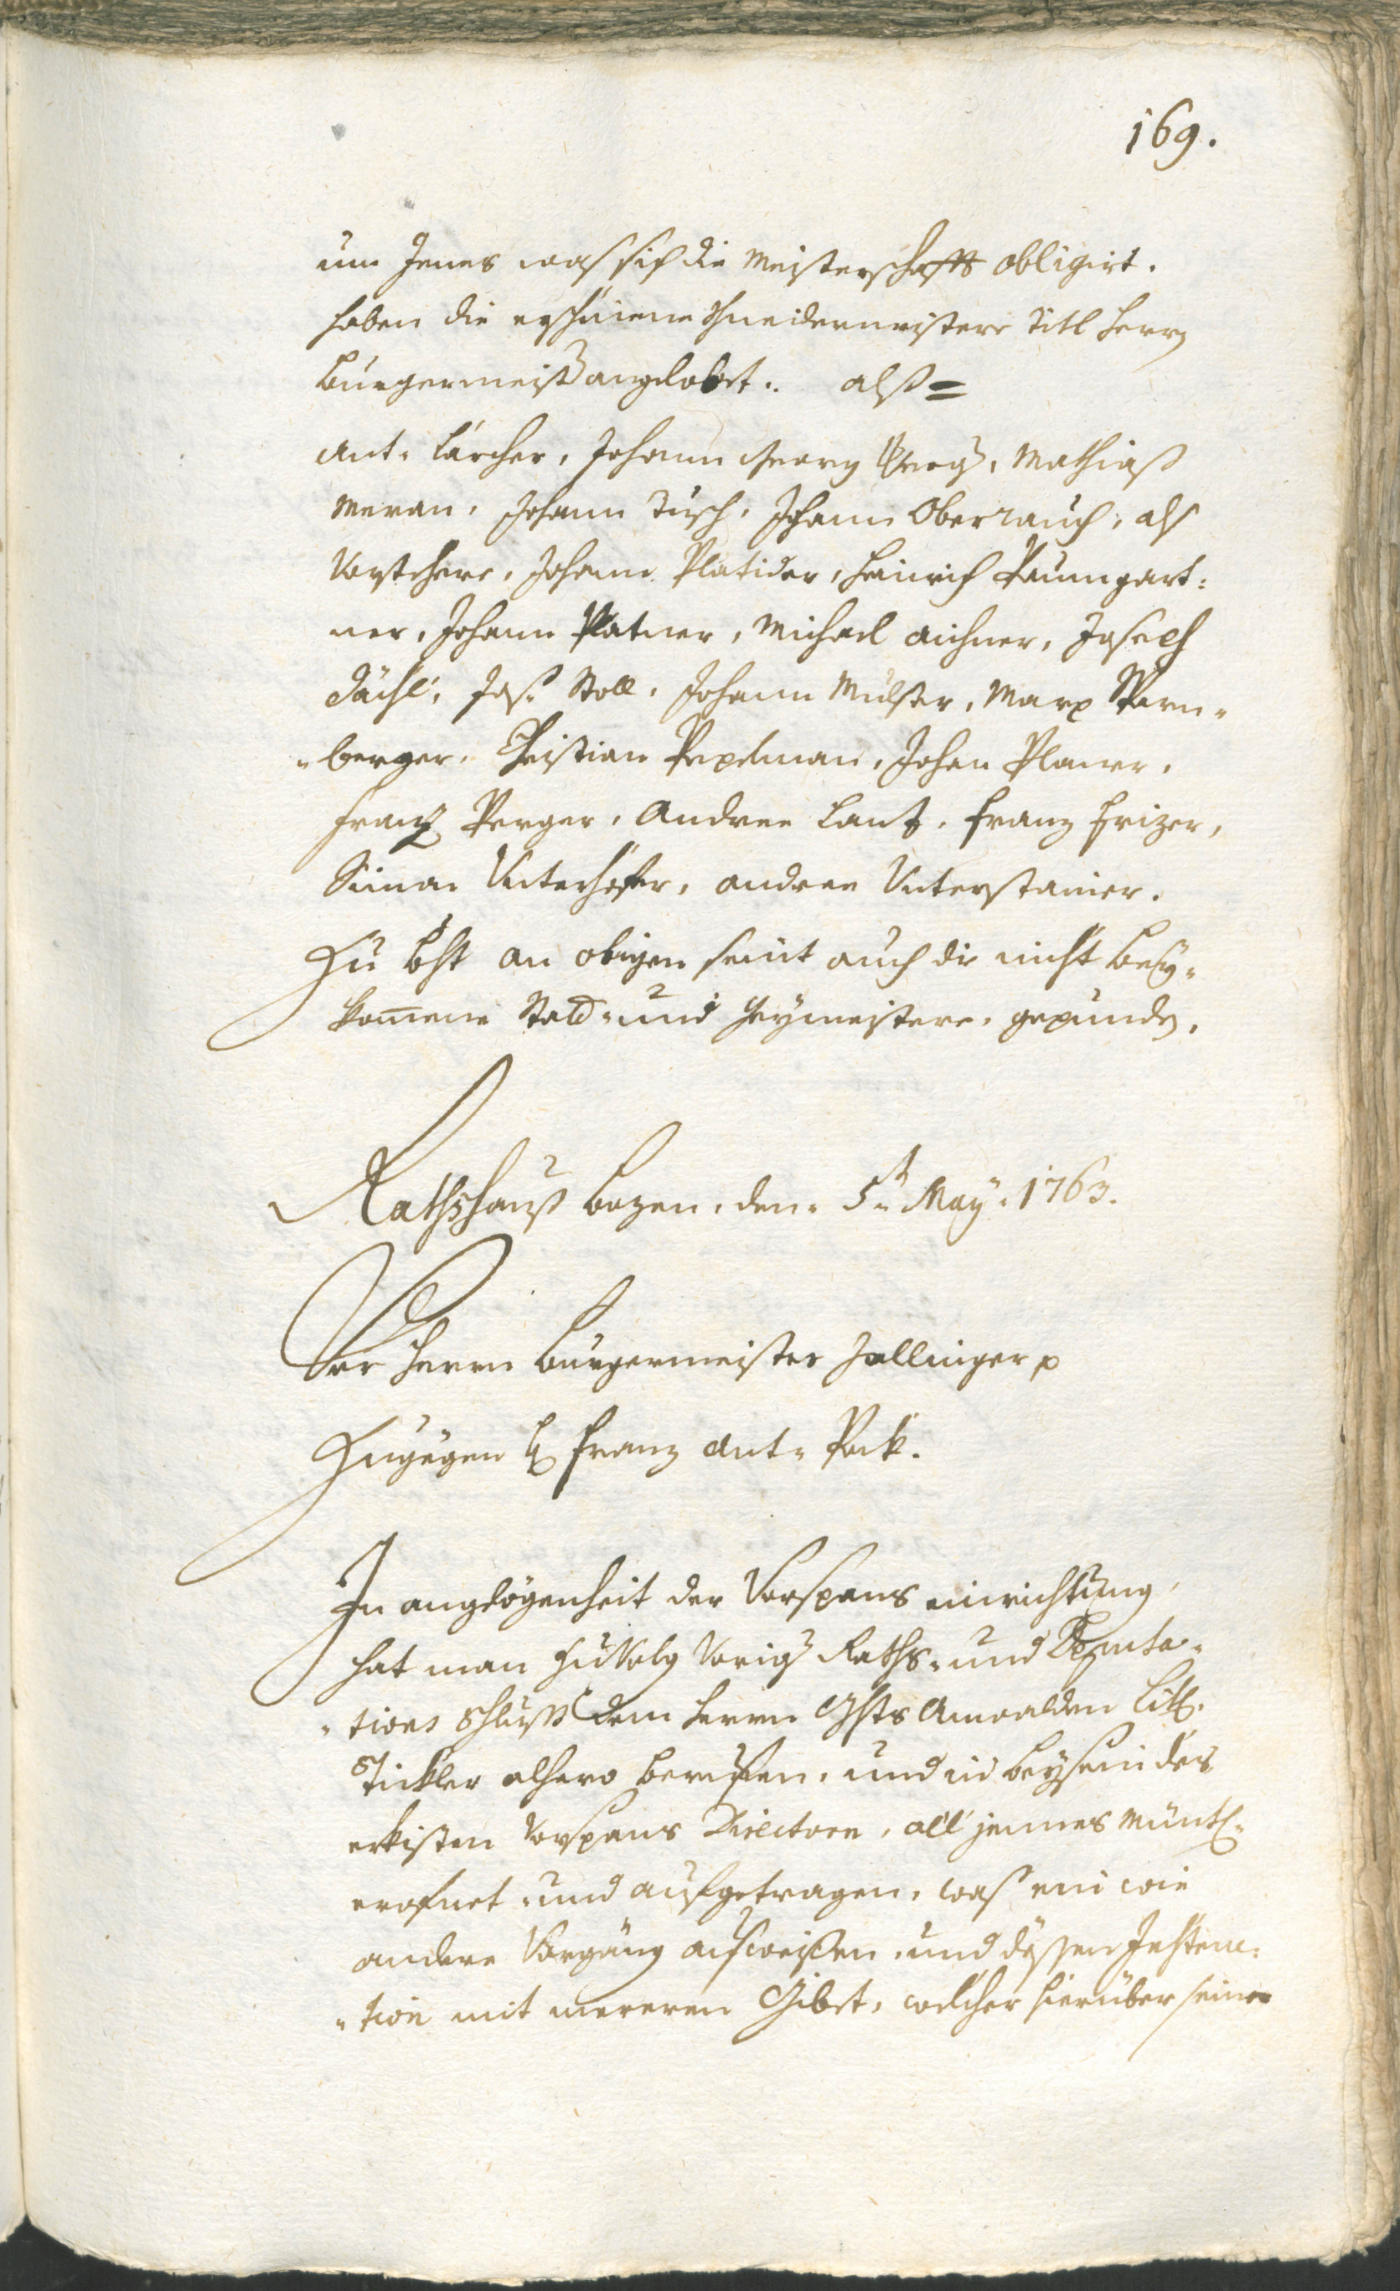 169.
um Jenes was sich die Meisterschafft obligirt.
haben die erschinene Schneidermeistere Titl Herrn
Burgermeister angelobet. alß=
Ant. Larcher, Johann Georg, Mathiaß
Meran, Johann Tusch, Johann Oberrauch, als
Vorstehere, Johann Platider, Heinrich Paumgart:
ner, Johann Platner, Michael Aichner, Joseph
Jächl, Jos. Stoll, Johann Mulser, Marx Stern-
-berger, Christian Pexelman, Johan Planer,
Franz Perger, Andree Lantz, Franz Frizer,
Simon Unterhofer, Andree Unterstainer.
Zu obigen seint auch die nicht bey-
komene Statt- und Geymeistere gepunden.
Rathshauß Bozen, den 5.t May 1763.
Vor Herrn Burgermeister Zallinger p
Zugegen H Franz Ant. Pock.
In angelögenheit der Vorspans einrichtung,
hat man zuvolg vorig Raths- und Deputa-
-tions Schluß dem Herrn Ghts Anwalden Titl.
Tickler alhero beruffen, und in beysein des
Vorspans Directorn, all jennes müntl.
erofnet und aufgetragen, was ein wie
andere Vorgäng aufweißen, und dessen Instruc-
-tion mit mereren Gibet, welcher hierüber seine